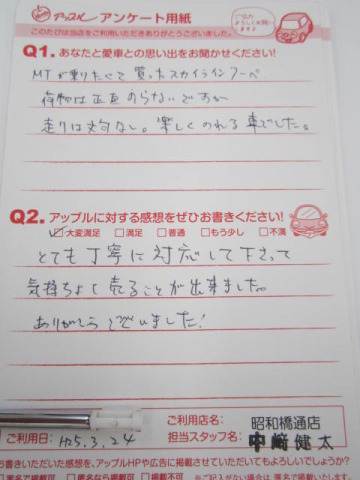 アップル アンケート用紙
このたびは当店をご利用いただきありがとうございました。
Q1. あなたと愛車との思い出をお聞かせください!
MTが乗りたくて買ったスカイラインクーペ
荷物は正直のらないですが
走りは文句なし。楽しくのれる車でした。
Q2. アップルに対する感想をぜひお書きください!
大変満足 満足 普通 もう少し 不満
とても丁寧に対応して下さって
気持ちよく売ることが出来ました。
ありがとうございました!
ご利用店名: 昭和橋通店
ご利用日: H25.3.24 担当スタッフ名: 中﨑 健太
お書きいただいた感想を、アップルHPや広告に掲載させていただいてもよろしいでしょうか?
実名で掲載可 匿名なら掲載可 掲載不可 ※ご記入がない場合は匿名で掲載いたします